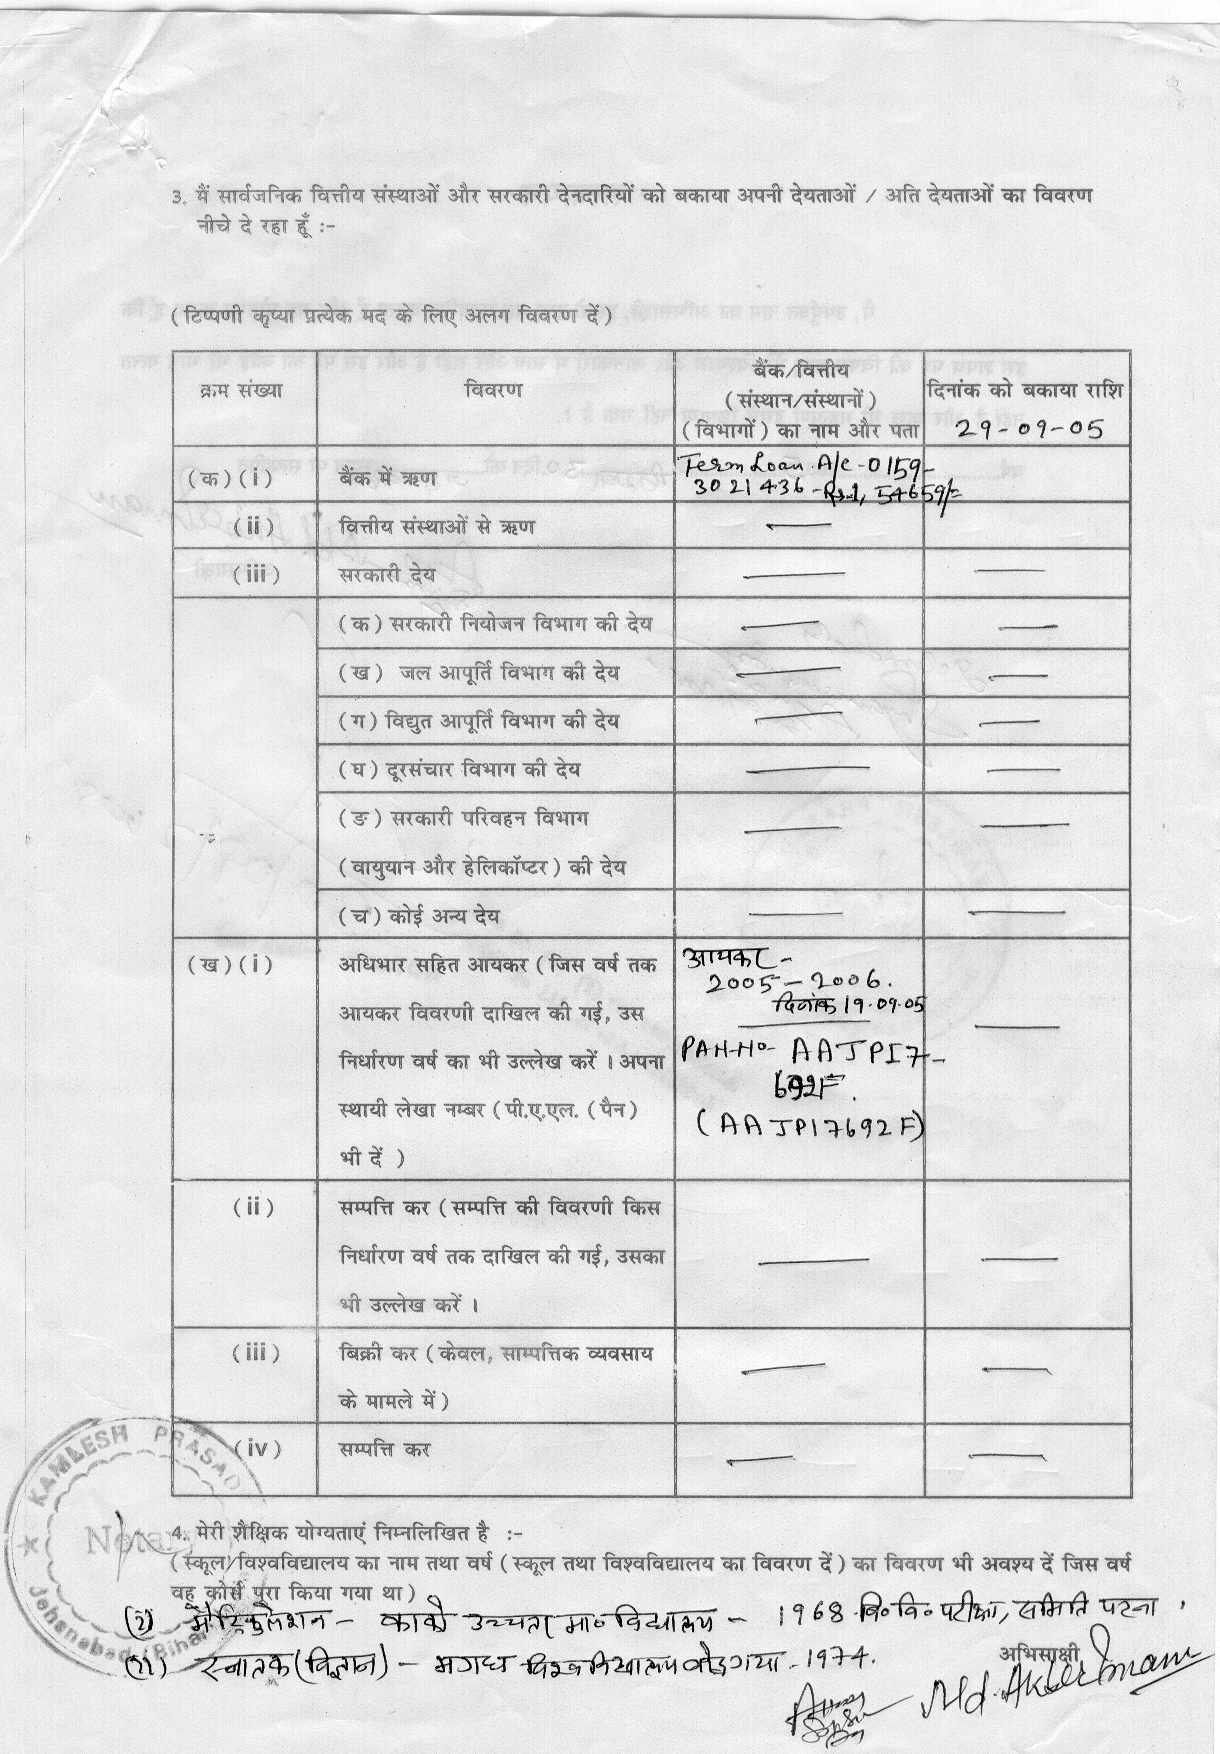 3. मैं सार्वजनिक वित्तीय संस्थाओं और सरकारी देनदारियों को बकाया अपनी देयताओं / अति देयताओं का विवरण
नीचे दे रहा हूँ :-
(टिप्पणी कृप्या प्रत्येक मद के लिए अलग विवरण दें)
क्रम संख्या
विवरण
बैंक/वित्तीय
(संस्थान/संस्थानों)
(विभागों) का नाम और पता
दिनांक को बकाया राशि
29-09-05
(क) (i)
बैंक में ऋण
Term Loan A/c-0159-
3021436 - Rs 1,54659/=
(ii)
वित्तीय संस्थाओं से ऋण
(iii)
सरकारी देय
(क) सरकारी नियोजन विभाग की देय
(ख) जल आपूर्ति विभाग की देय
(ग) विद्युत आपूर्ति विभाग की देय
(घ) दूरसंचार विभाग की देय
(ङ) सरकारी परिवहन विभाग
(वायुयान और हेलिकॉप्टर) की देय
(च) कोई अन्य देय
(ख) (i)
अधिभार सहित आयकर (जिस वर्ष तक
आयकर विवरणी दाखिल की गई, उस
निर्धारण वर्ष का भी उल्लेख करें । अपना
स्थायी लेखा नम्बर (पी.ए.एल. (पैन)
भी दें )
आयकर -
2005-2006.
दिनांक 19.09.05
PAN-No- AAJPI7-
692F.
(AAJPI7692F)
(ii)
सम्पत्ति कर (सम्पत्ति की विवरणी किस
निर्धारण वर्ष तक दाखिल की गई, उसका
भी उल्लेख करें ।
(iii)
बिक्री कर (केवल, साम्पत्तिक व्यवसाय
के मामले में)
(iv)
सम्पत्ति कर
KAMLESH PRASAD
Notary
Jehanabad (Bihar)
4. मेरी शैक्षिक योग्यताएं निम्नलिखित है :-
(स्कूल/विश्वविद्यालय का नाम तथा वर्ष (स्कूल तथा विश्वविद्यालय का विवरण दें) का विवरण भी अवश्य दें जिस वर्ष
वह कोर्स पूरा किया गया था)
मैट्रिकुलेशन - काको उच्चतर मा० विद्यालय - 1968 वि० वि० परीक्षा, समिति पटना .
स्नातक (विज्ञान) - मगध विश्वविद्यालय बोधगया - 1974.
अभिसाक्षी
Md. Akbar Imam